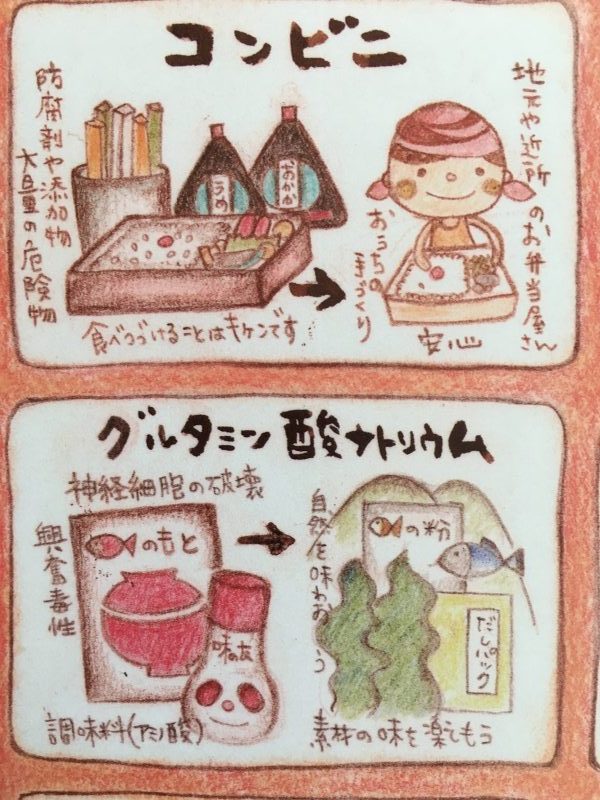 コンビニ
防腐剤や添加物
大量の危険物
うめ
おかか
食べつづけることはキケンです
おうちの
手づくり
地元や近所のお弁当屋さん
安心
グルタミン酸ナトリウム
神経細胞の破壊
興奮毒性
のもと
味の友
調味料(アミノ酸)
自然を味わおう
の粉
だしパック
素材の味を楽しもう